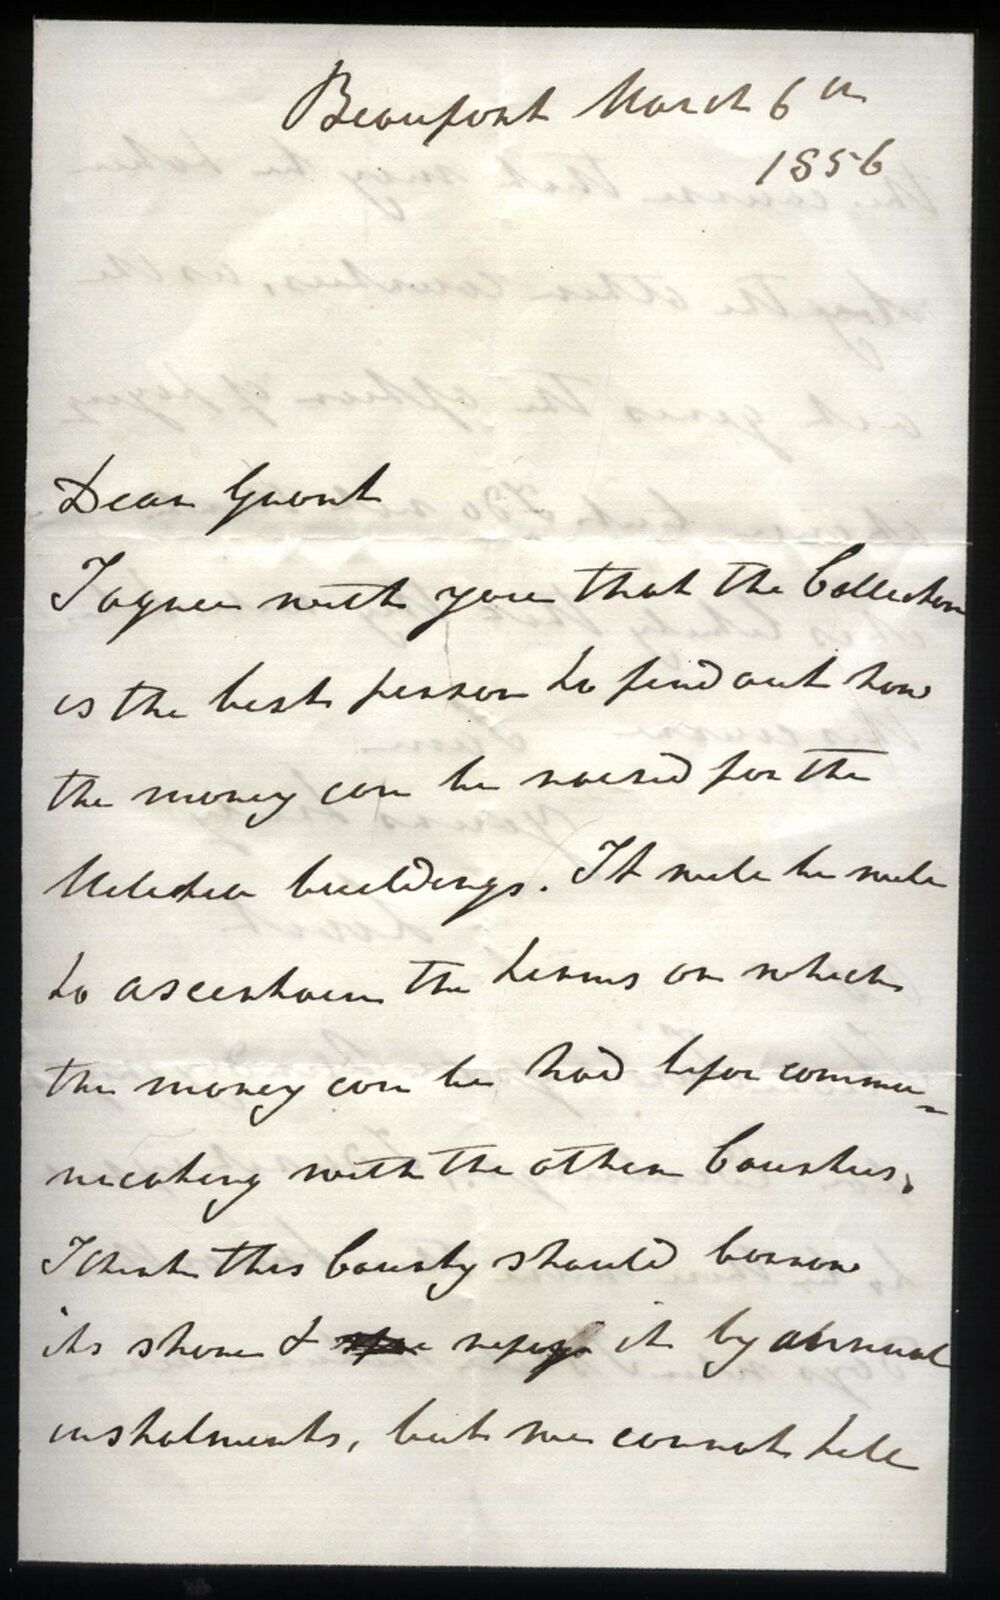 Beaufort March 6th
1856
Dear Grant
I agree with you that the Collector
is the best person to find out how
the money can be raised for the
Militia buildings. It will be well
to ascertain the terms on which
the money can be had befor commu=
nicating with the other Counties.
I think this County should borrow
its share & repay it by annual
instalments, but we cannot tell